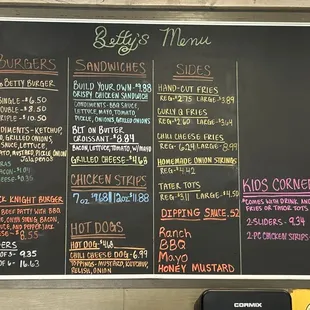 Betty's Menu
BURGERS
BETTY BURGER
SINGLE - 6.50
DOUBLE - 8.50
TRIPLE - 10.50
CONDIMENTS - KETCHUP,
LETTUCE,
MUSTARD, PICKLE, ONION
Jalapenos
BLACK KNIGHT BURGER
BEEF PATTY WITH BBQ
SAUCE, ONION STRING, BACON,
AND PEPPER JACK
8.55
OF 3- 9.35
OF 6- 16.63
SANDWICHES
BUILD YOUR OWN - $9.88
CRISPY CHICKEN SANDWICH
CONDIMENTS - BBQ SAUCE,
MUSTARD, MAYO, TOMATO,
PICKLE, ONIONS, GRILLED ONIONS
BLT ON BUTTER
CROISSANT - 8.84
BACON, LETTUCE, TOMATO, W/ MAYO
GRILLED CHEESE - $4.68
CHICKEN STRIPS
7 OZ $7.68 12 OZ 11.88
HOT DOGS
HOT DOG $4.68
CHILI CHEESE DOG - 6.99
TOPPINGS - MUSTARD, KETCHUP,
RELISH, ONION
SIDES
HAND-CUT FRIES
REG - $2.75 LARGE - $3.89
CURLY Q FRIES
REG $2.60 LARGE - $3.64
CHILI CHEESE FRIES
REG - 6.24 LARGE - 8.99
HOMEMADE ONION STRINGS
REG - $4.42
TATER TOTS
REG $3.11 LARGE - $4.50
DIPPING SAUCE .52
Ranch
BBQ
Mayo
HONEY MUSTARD
KIDS CORNER
*COMES WITH DRINK AND
FRIES OR TATOR TOTS
2-SLIDERS - 9.34
2-PC CHICKEN STRIPS
CORMIX